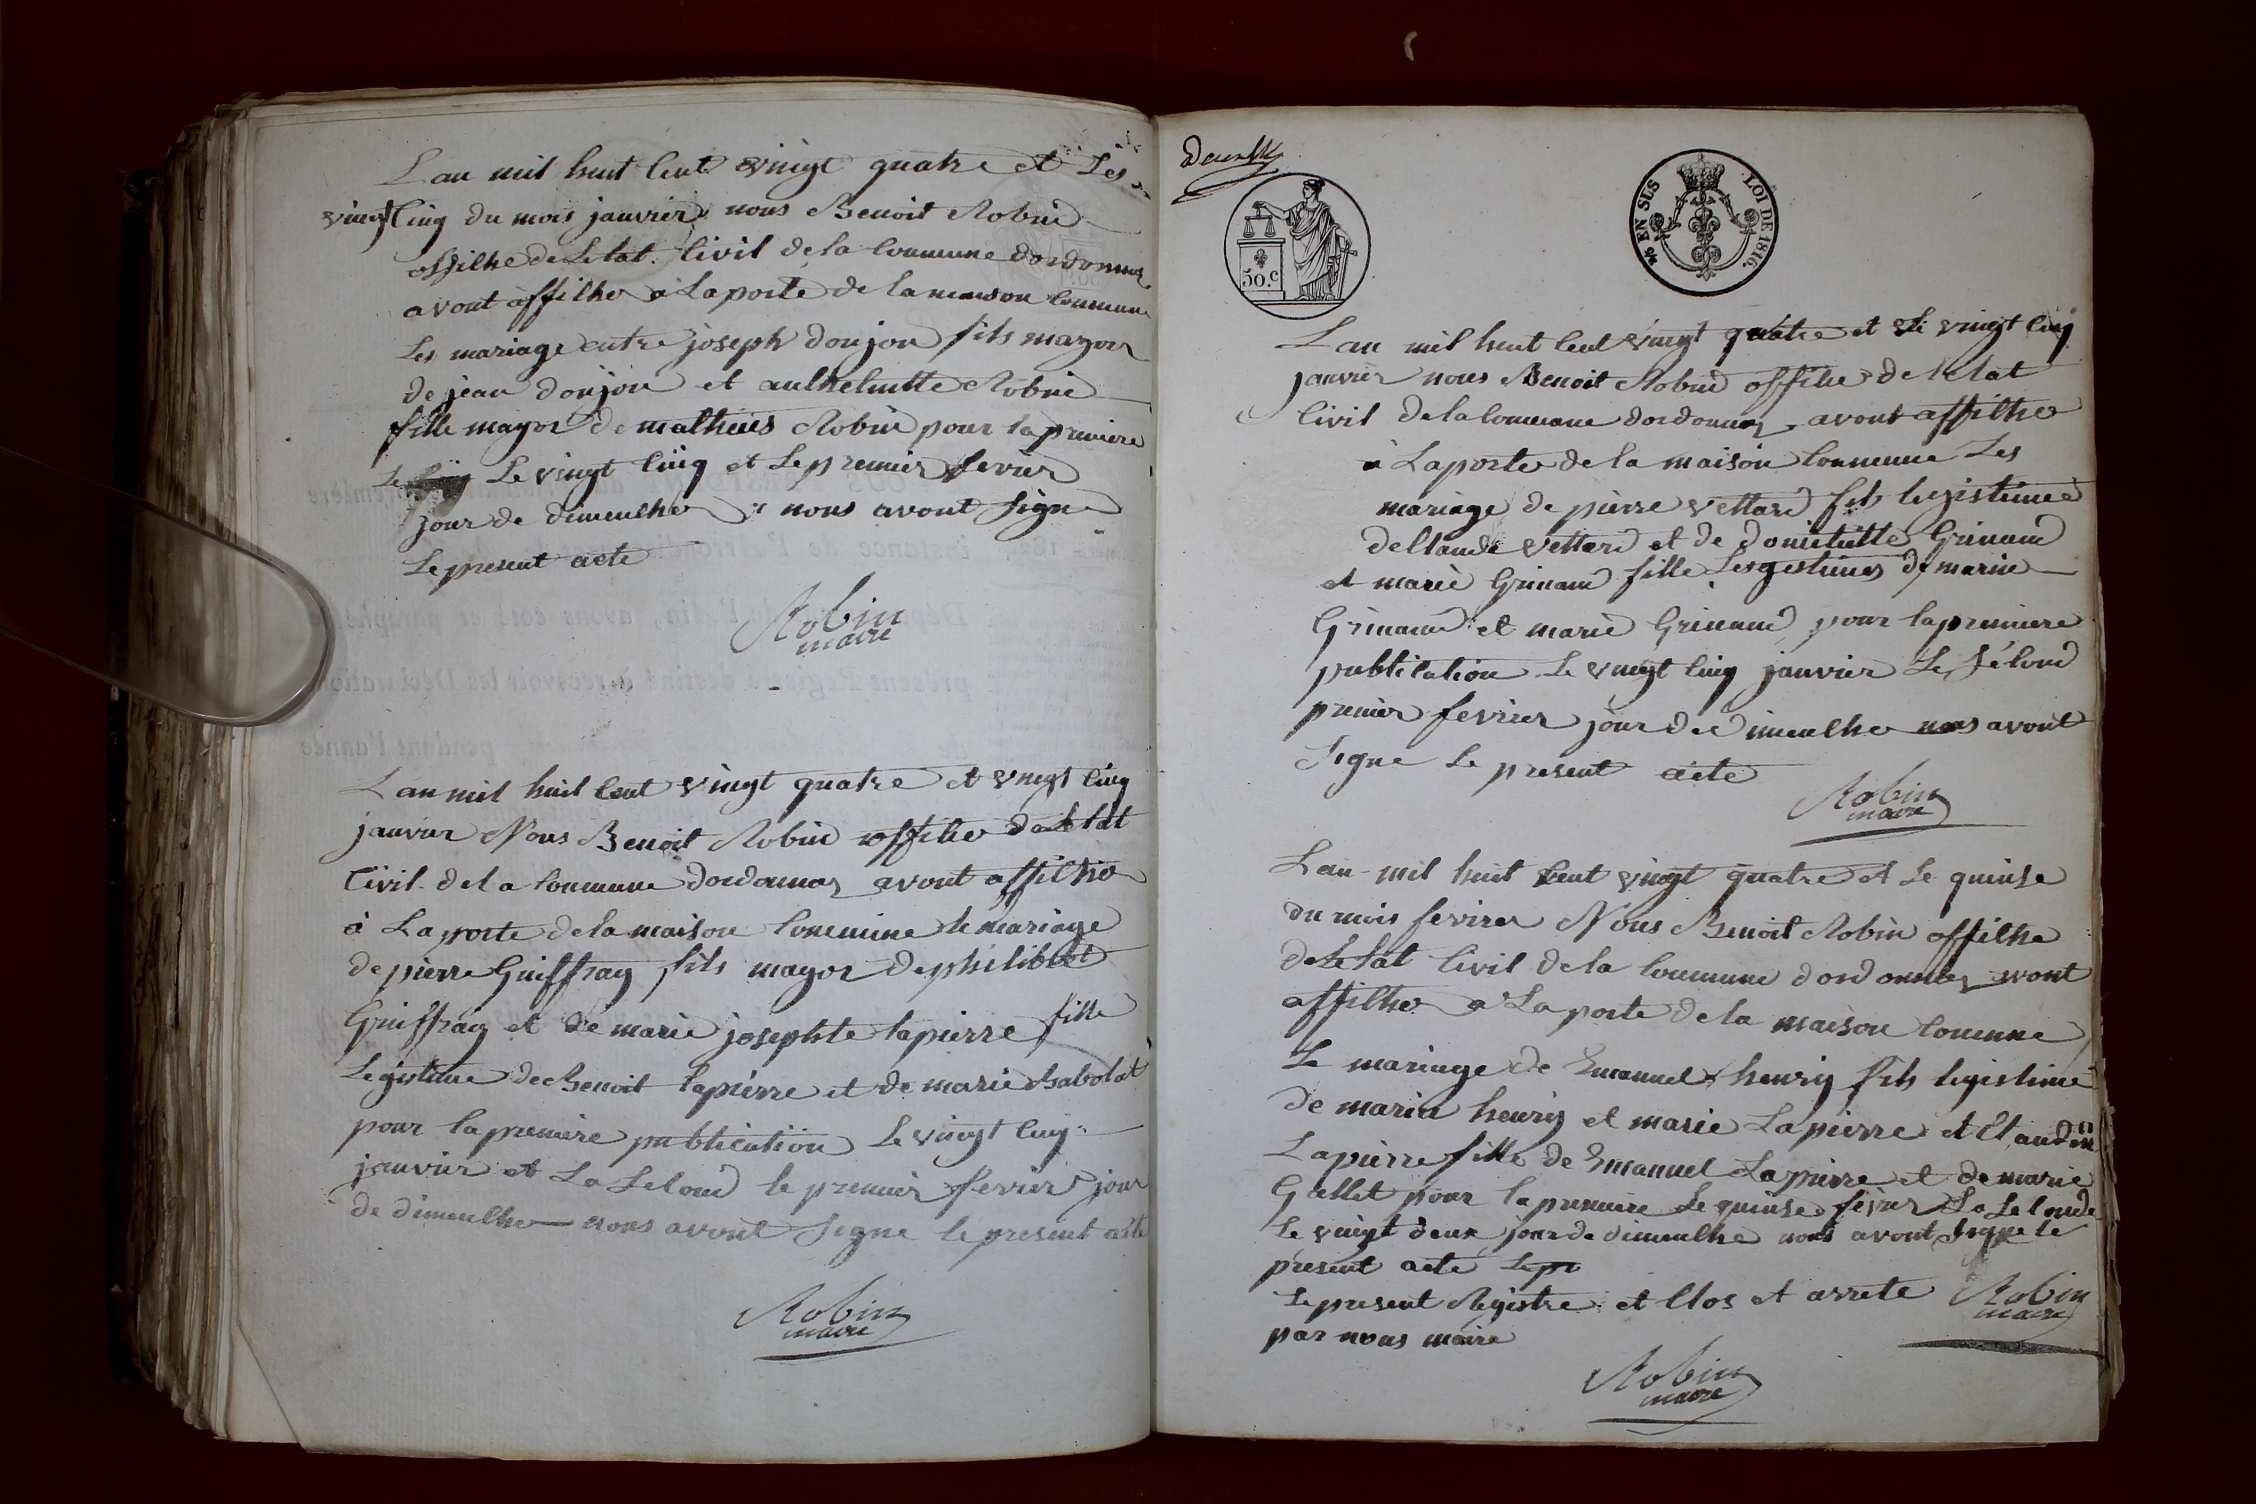 Lan mil huit Cent vingt quatre et Les
vingt Cinq du mois janvier nous Benoit Robin
offilhe de Letat Civil de la Commune dordonnas
avont affilhe a La porte de la maison Commune
Les mariage entre joseph donjon fils mayor
de jean donjon et anthelmette Robin
fille mayor de matheus Robin pour la premiere
Le Le vingt Cinq et Le premier fevrier
jour de dimenlhe nous avont Signe
Le present acte
Robin
maire
Lan mil huit Cent vingt quatre et vingt Cinq
janvier Nous Benoit Robin offilhe de Letat
Civil de la Commune dordonnas avont affilhe
à La porte de la maison Commune le mariage
de pierre Guiffray fils mayor de philibert
Guiffray et de marie josephte lapierre fille
Legistime de Benoit lapierre et de marie Chabolat
pour la premiere publication Le vingt Cinq
janvier et La Selond le premier fevrier jour
de dimenlhe nous avont Signe le present acte
Robin
maire
50.c
EN SUS
LOI DE 1816.
Lan mil huit Cent vingt quatre et Le vingt Cinq
janvier nous Benoit Robin offilhe de letat
Civil de la Commune dordonnas avont affilhe
a La porte de la maison Commune Les
mariage de pierre vettard fils legistime
de Claude vettard et de domitille Grinand
et marie Grinand fille Lesgestimes de marie
Grinand et marie Grinand pour la premiere
publication Le vingt Cinq janvier Le Selond
premier fevrier jour de dimenlhe nous avont
Signe Le present acte
Robin
maire
Lan mil huit Cent vingt quatre et Le quinse
du mois fevrier Nous Benoit Robin offilhe
de Letat Civil de la Commune dordonnas avont
affilhe a La porte de la maison Comune
Le mariage de Emanuel henriy fils legistime
de marin henriy et marie Lapierre et Claudine
Lapierre fille de Emanuel Lapierre et de marie
Gallet pour la premiere Le quinse fevrier La Selonde
Le vingt deux jour de dimenlhe nous avont Signe le
present acte Le pr
Le present Registre et Clos et arrete
par nous maire
Robin
maire
Robin
maire